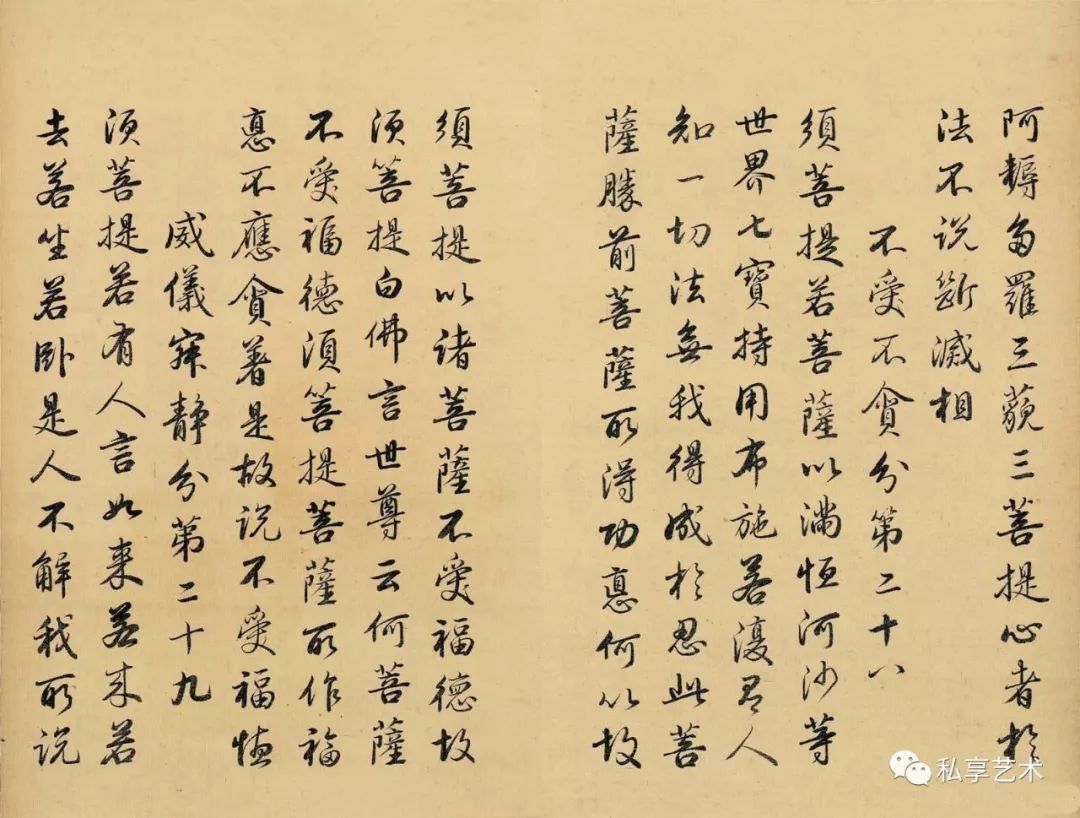 阿耨多羅三藐三菩提心者於
法不说斷滅相
不受不貪分第二十八
須菩提若菩薩以滿恒河沙等
世界七寳持用布施若復有人
知一切法無我得成於忍此菩
薩勝前菩薩所得功悳何以故
須菩提以諸菩薩不受福德故
須菩提白佛言世尊云何菩薩
不受福德須菩提菩薩所作福
悳不應貪著是故说不受福德
威儀寂静分第二十九
須菩提若有人言如来若来若
去若坐若卧是人不解我所说
私享艺术